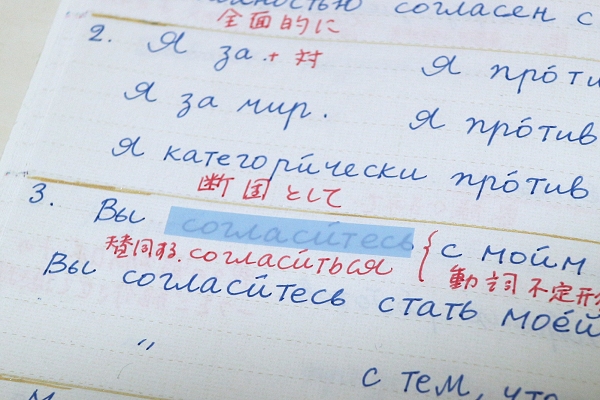 согласен с
全面的に
2. Я за. + 対 Я про́ти
Я за мир. Я про́тив
Я категори́чески про́тив
断固として
3. Вы согласи́тесь { с мои́м
賛同する. согласи́ться 動詞不定形
Вы согласи́тесь стать мое́й
"
с тем, что